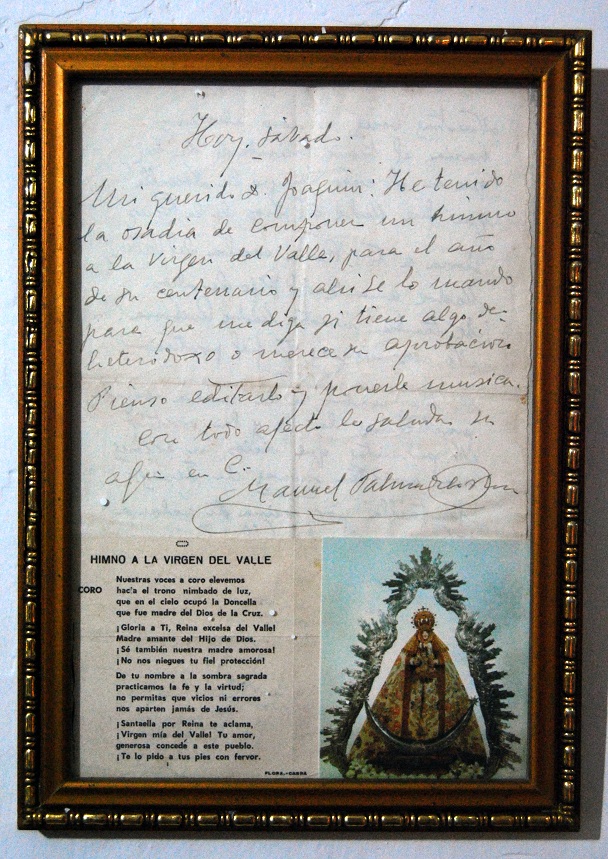 Hoy, sábado.
Mi querido D. Joaquin: He tenido
la osadia de componer un himno
a la Virgen del Valle, para el año
de su centenario y ahi se lo mando
para que me diga si tiene algo de
heterodoxo o merece su aprobación
Pienso editarlo y ponerle musica.
Con todo afecto le saluda su
en C.
Manuel Palma
HIMNO A LA VIRGEN DEL VALLE
CORO
Nuestras voces a coro elevemos
hac'a el trono nimbado de luz,
que en el cielo ocupó la Doncella
que fue madre del Dios de la Cruz.
¡Gloria a Ti, Reina excelsa del Valle!
Madre amante del Hijo de Dios.
¡Sé también nuestra madre amorosa!
¡No nos niegues tu fiel protección!
De tu nombre a la sombra sagrada
practicamos la fe y la virtud;
no permitas que vicios ni errores
nos aparten jamás de Jesús.
¡Santaella por Reina te aclama,
¡Virgen mía del Valle! Tu amor,
generosa concede a este pueblo.
¡Te lo pido a tus pies con fervor.
FLORA.-CABRA